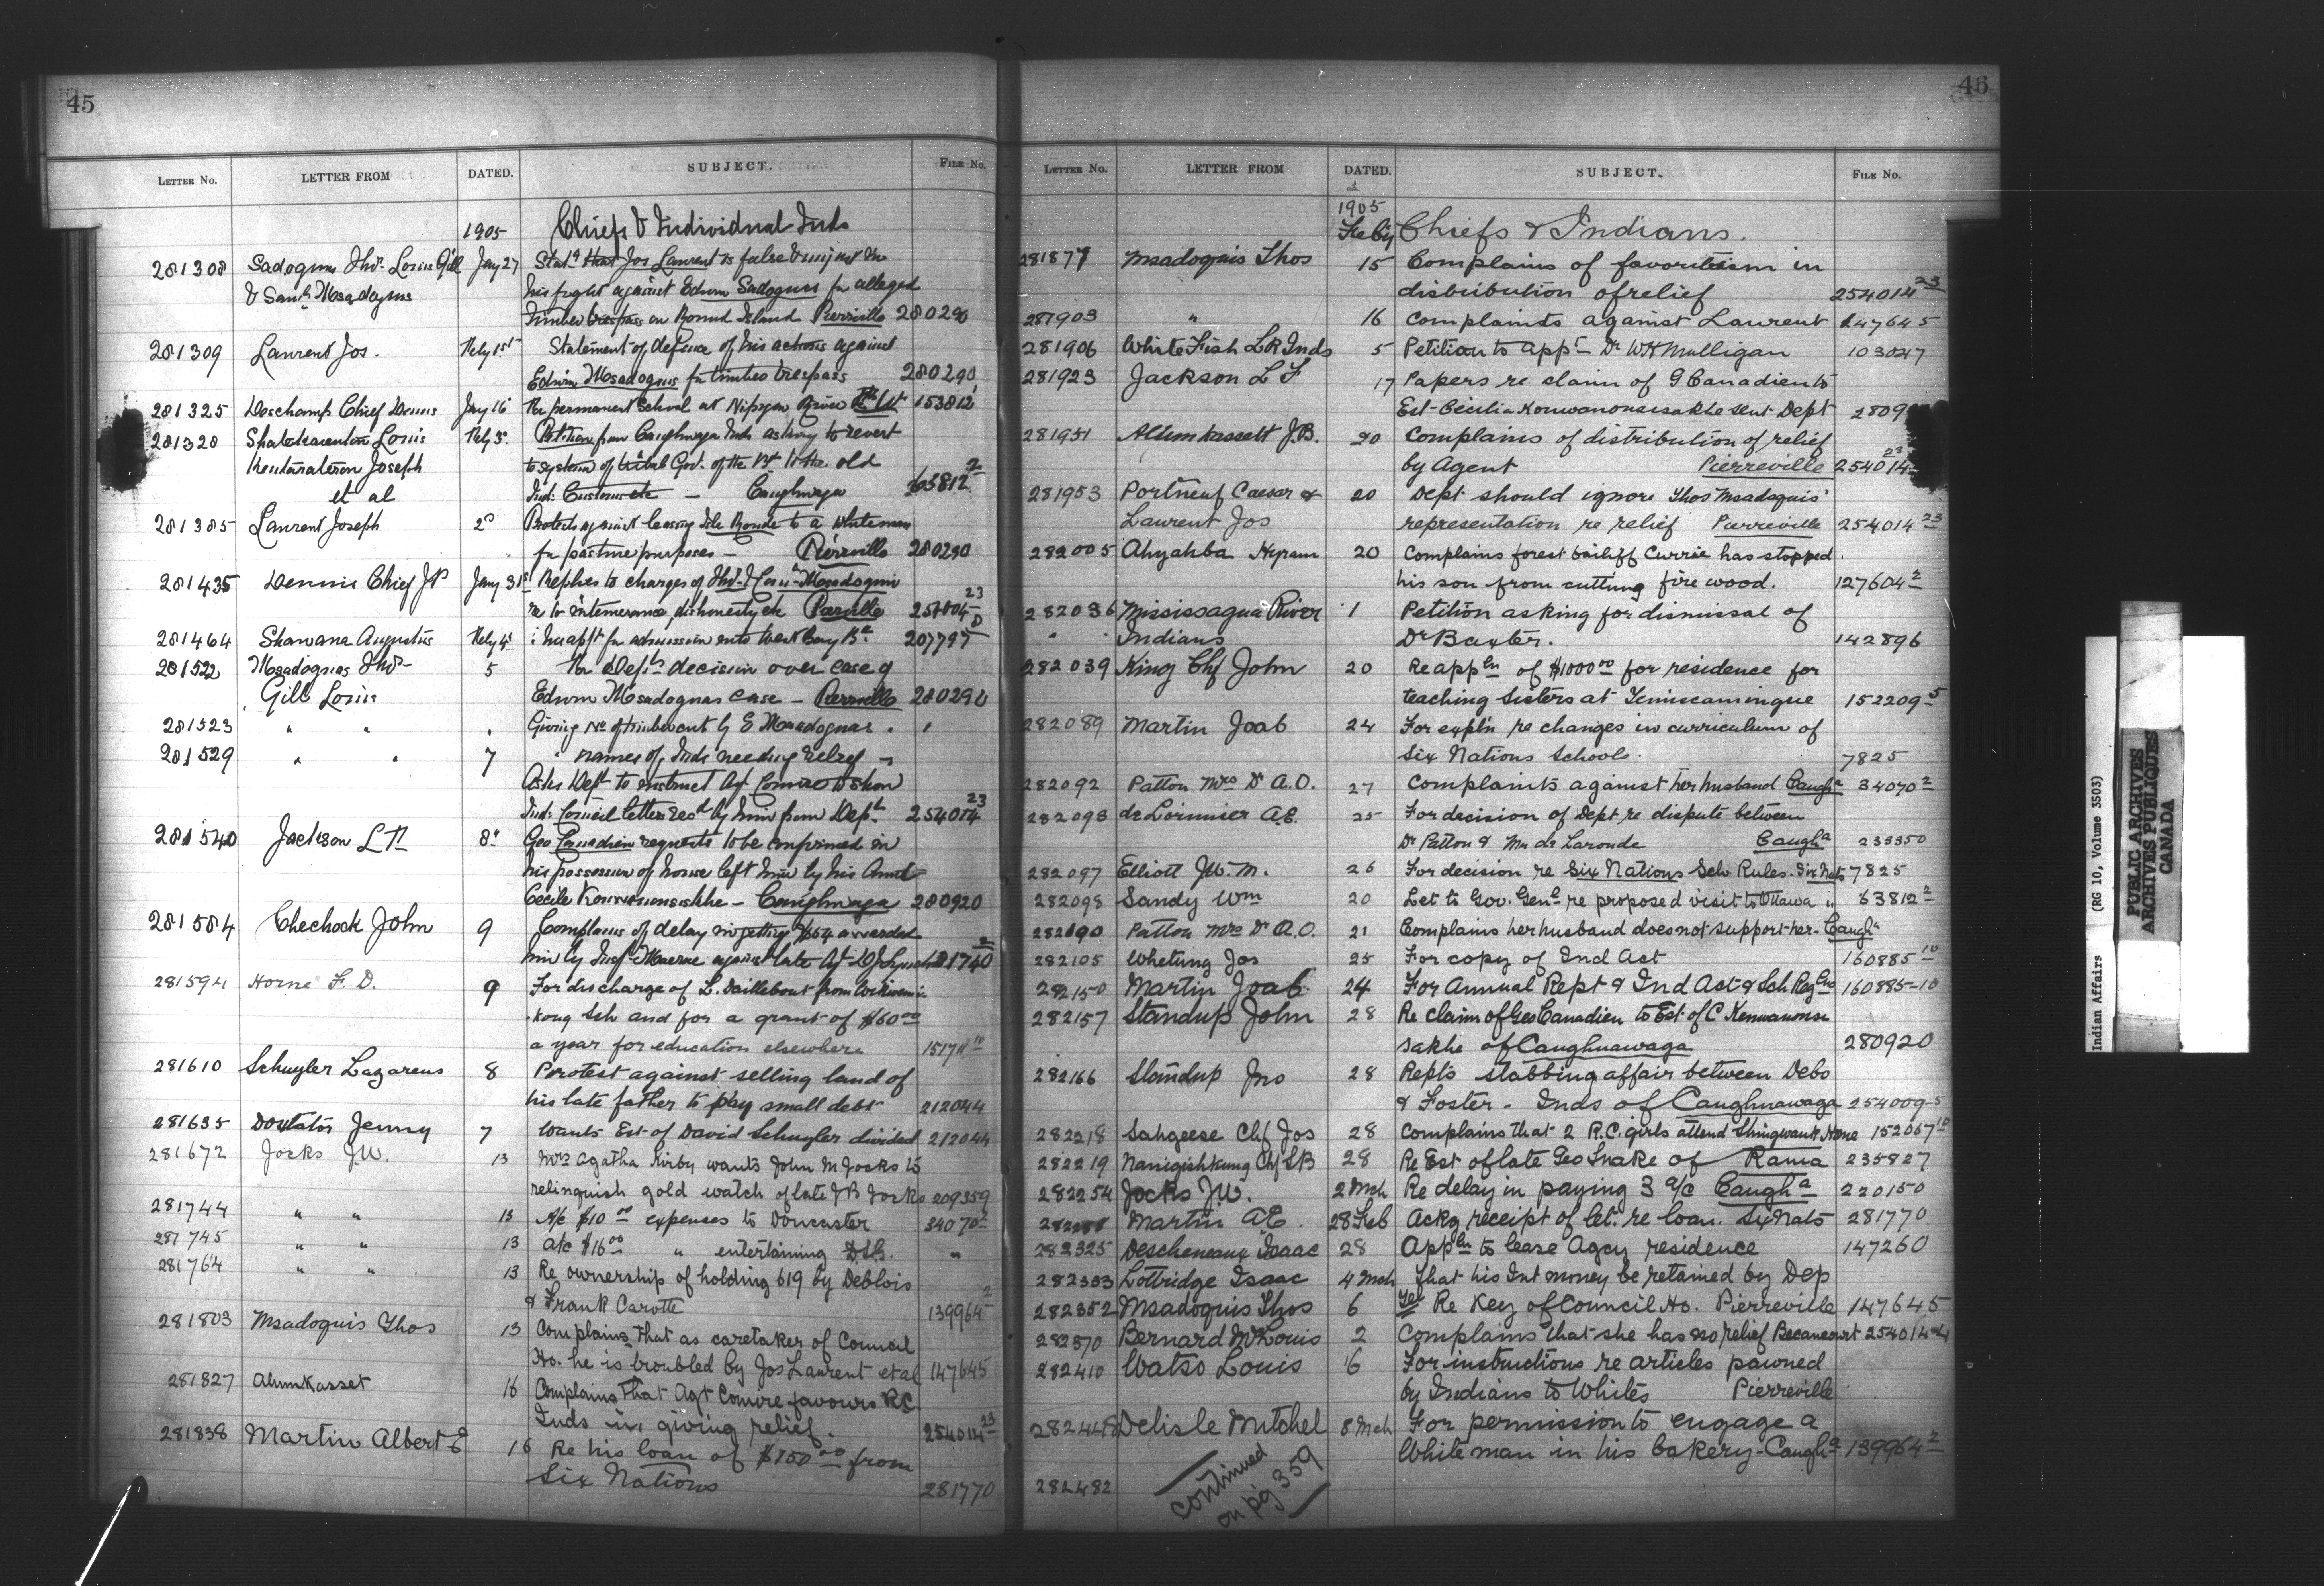 45
LETTER NO. LETTER FROM DATED. SUBJECT. FILE NO.
1905 Chiefs & Individual Inds
281308 Sadoques Thos Louis Gill Jany 27 Statg that Jos Laurent is false & unjust in
& Saml Msadoques his fight against Edwin Sadoques for alleged
timber trespass on Round Island Pierville 280290
281309 Laurent Jos. Feby 1st Statement of defence of his actions against
Edwin Msadoques for timber trespass 280290
281325 Deschamp Chief Denis Jany 16 Re permanent School at Nipigon River 153812
281328 Louis Feby 3 Petition from Caughnwaga Inds asking to revert
Joseph to system of tribal Gov. of the to the old
et al Ind: Customs etc — Caughnwaga 63812 2
281385 Laurent Joseph 2 Protests against leasing Isle Ronde to a whiteman
for pasture purposes — Pierville 280290
281435 Dennis Chief Jany 31st Replies to charges of Thos & Msadoques
re to intemerance, dishonesty etc Pierville 23
281464 Shawana Augustus Feby 4 appt for admission into West Bay Bd 207797
281522 Msadoques Thos 5 Re Dept's decision over case of
Gill Louis Edwin Msadoques case — Pierville 280290
281523 " " . Giving No of timber cut by E Msadoques . "
281529 " " 7 " names of Inds needing relief —
Asks Dept to instruct Agt Comire to show
Ind: Council letter recd by him from Dept. 254014 23
281540 Jackson L F 8 Geo Canadien requests to be confirmed in
his possession of house left him by his Aunt
Cecile — Caughnwaga 280920
281584 Chechock John 9 Complains of delay in getting $64 awarded
him by Insp. against late Agt
281594 Horne F. D. 9 For discharge of L. Daillebout from Wikwemi-
kong Sch and for a grant of $60 00
a year for education elsewhere 10
281610 Schuyler Lazareus 8 Protest against selling land of
his late father to pay small debt 212044
281635 Doxtator Jenny 7 Wants Est of David Schuyler divided 212044
281672 Jocks J.W. 13 Mrs Agatha Kirby wants John M Jocks to
relinquish gold watch of late J B Jocks 209359
281744 " " 13 A/c $10 00 expenses to Doncaster 34070 2
281745 " " 13 A/c $16 00 " entertaining D.S.G. "
281764 " " 13 Re ownership of holding 619 by Deblois
& Frank Carotte 139964 2
281803 Msadoquis Thos 13 Complains that as caretaker of Council
Ho. he is troubled by Jos Laurent et al 147645
281827 Alumkasset 16 Complains that Agt Comire favours RC
Inds in giving relief. 254014 23
281838 Martin Albert E 16 Re his loan of $150 00 from
Six Nations 281770
46
LETTER NO. LETTER FROM DATED. SUBJECT. FILE NO.
1905
Feby Chiefs & Indians.
281877 Msadoquis Thos 15 Complains of favoritism in
distribution of relief 254014 23
281903 " 16 Complaints against Laurent 147645
281906 White Fish L R Inds 5 Petition to appt Dr WH Mulligan 103047
281923 Jackson L F 17 Papers re claim of G Canadien to
Est-Cecilia Konwanonsisakhe sent Dept 2809
281951 Alumkassett J.B. 20 Complains of distribution of relief
by Agent Pierreville 254014 23
281953 Portneuf Caesar & 20 Dept should ignore Thos Msadoquis'
Laurent Jos representation re relief Pierreville 254014 23
282005 Ahyahba Hyram 20 Complains forest bailiff Currie has stopped
his son from cutting fire wood. 127604 2
282036 Mississagua River 1 Petition asking for dismissal of
" Indians Dr Baxter. 142896
282039 King Chf John 20 Re appln of $1000 00 for residence for
teaching Sisters at Temiscamingue 152209 5
282089 Martin Joab 24 For expl'n re changes in curriculum of
Six Nations Schools. 7825
282092 Patton Mrs Dr A.O. 27 Complaints against her husband Caugha 34070 2
282093 de Lorimier A.E. 25 For decision of Dept re dispute between
Dr Patton & Mr de Laronde Caugha 233350
282097 Elliott J.W.M. 26 For decision re Six Nations Sch Rules. Six Nats 7825
282098 Sandy Wm 20 Let to Gov. Genl re proposed visit to Ottawa " 63812 2
282100 Patton Mrs Dr A.O. 21 Complains her husband does not support her- Caugha
282105 Whetung Jos 25 For copy of Ind Act 160885 10
282150 Martin Joab 24 For Annual Rept & Ind Act & Sch Reglns 160885-10
282157 Standup John 28 Re claim of Geo Canadien to Est of C Kenwanonsi
sakhe of Caughnawaga 280920
282166 Standup Jno 28 Repts stabbing affair between Debo
& Foster - Inds of Caughnawaga 254009-5
282218 Sahgeese Chf Jos 28 Complains that 2 R.C. girls attend Shingwauk Home 152067 10
282219 Nanigishkung Chf S B 28 Re Est of late Geo Snake of Rama 235827
282254 Jocks J.W. 2 Mch Re delay in paying 3 a/c Caugha 220150
Martin A.E. 28 Feb Ackg receipt of let. re loan. Six Nats 281770
282325 Descheneaux Isaac 28 Appln to lease Agcy residence 147260
282333 Lottridge Isaac 4 Mch That his Int money be retained by Dep
282352 Msadoquis Thos 6 Tel Re Key of Council Ho. Pierreville 147645
282370 Bernard Louis 2 Complains that she has no relief Becancourt 254014
282410 Watso Louis 6 For instructions re articles pawned
by Indians to Whites Pierreville
282448 Delisle Mitchel 8 Mch For permission to engage a
White man in his bakery-Caugha 139964 2
282482 continued
on pg 359
Indian Affairs (RG 10, Volume 3503)
PUBLIC ARCHIVES
ARCHIVES PUBLIQUES
CANADA